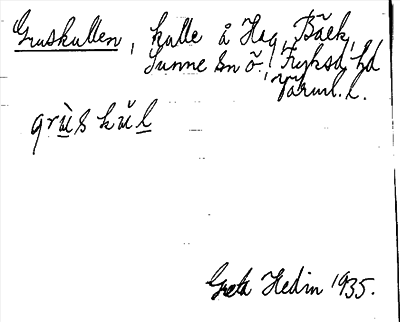 Gruskullen, kulle å Hag, Bäck,
Sunne sn ö., Fryksd. hd
Värml. l.
grùs kŭl
Greta Hedin 1935.